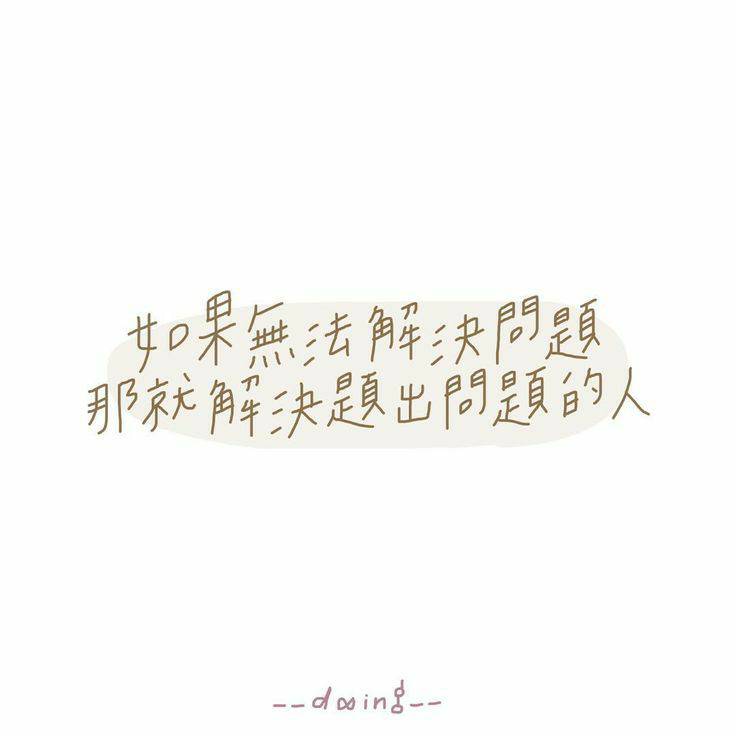 如果無法解決問題
那就解決題出問題的人
--dooing--